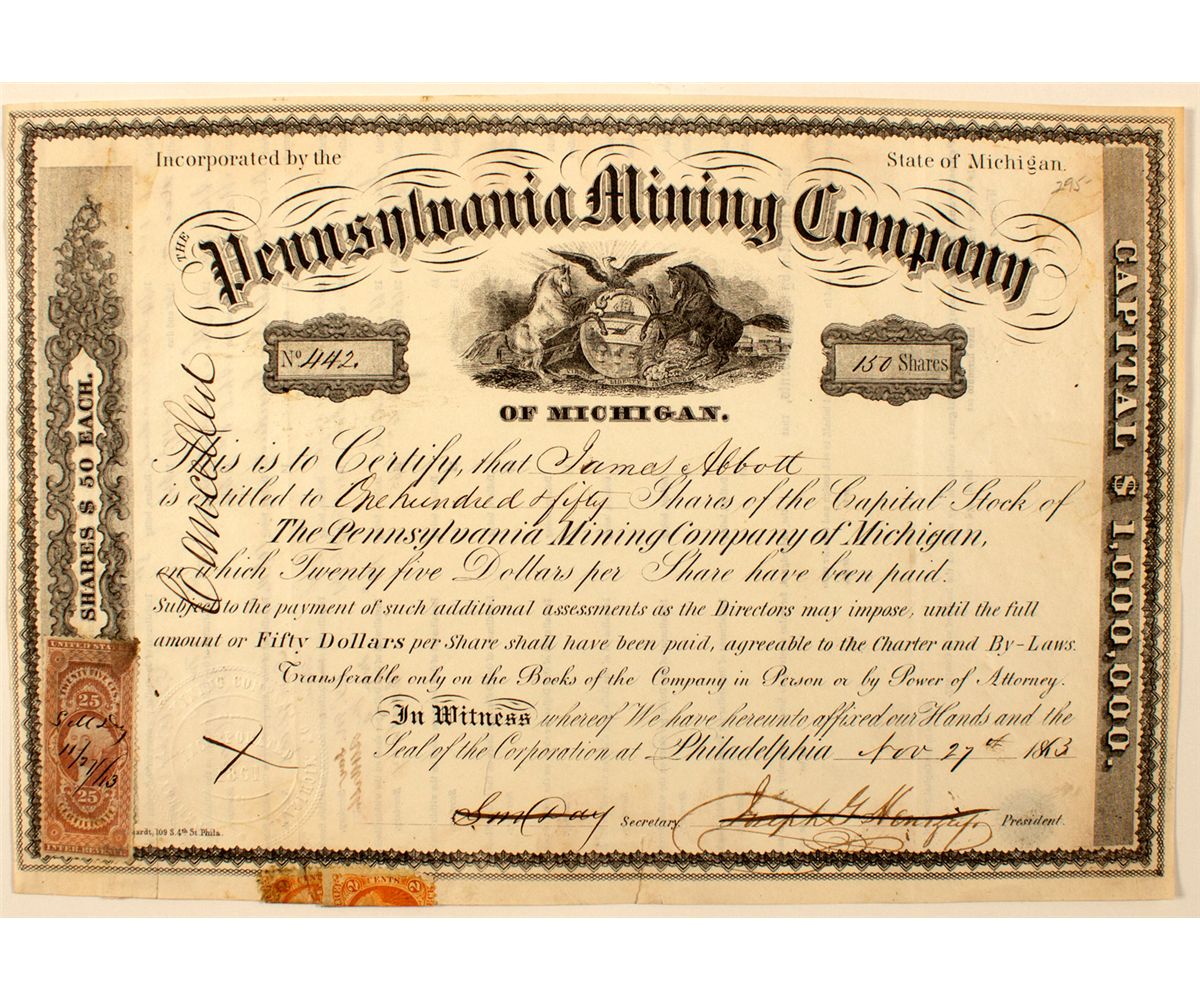 Incorporated by the
State of Michigan.
295-
THE
Pennsylvania Mining Company
No 442.
150 Shares
OF MICHIGAN.
Cancelled
This is to Certify, that James Abbott
is entitled to One hundred & fifty Shares of the Capital Stock of
The Pennsylvania Mining Company of Michigan,
on which Twenty five Dollars per Share have been paid.
Subject to the payment of such additional assessments as the Directors may impose, until the full
amount or Fifty Dollars per Share shall have been paid, agreeable to the Charter and By-Laws.
Transferable only on the Books of the Company in Person or by Power of Attorney.
In Witness whereof We have hereunto affixed our Hands and the
Seal of the Corporation at Philadelphia Nov 27th 1863
S M Day Secretary.
Joseph G Henszey President.
SHARES $ 50 EACH.
CAPITAL $ 1,000,000.
UNITED STA
25
25
CERTIFICATE
INTER REVENUE
S M Day
11/27/63
ardt, 109 S. 4th St. Phila.
2 CENTS 2